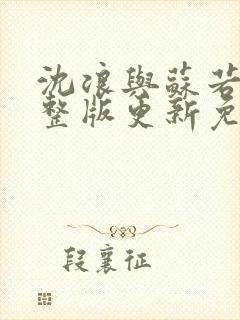 沈浪與蘇若
整版更新免
段襄征